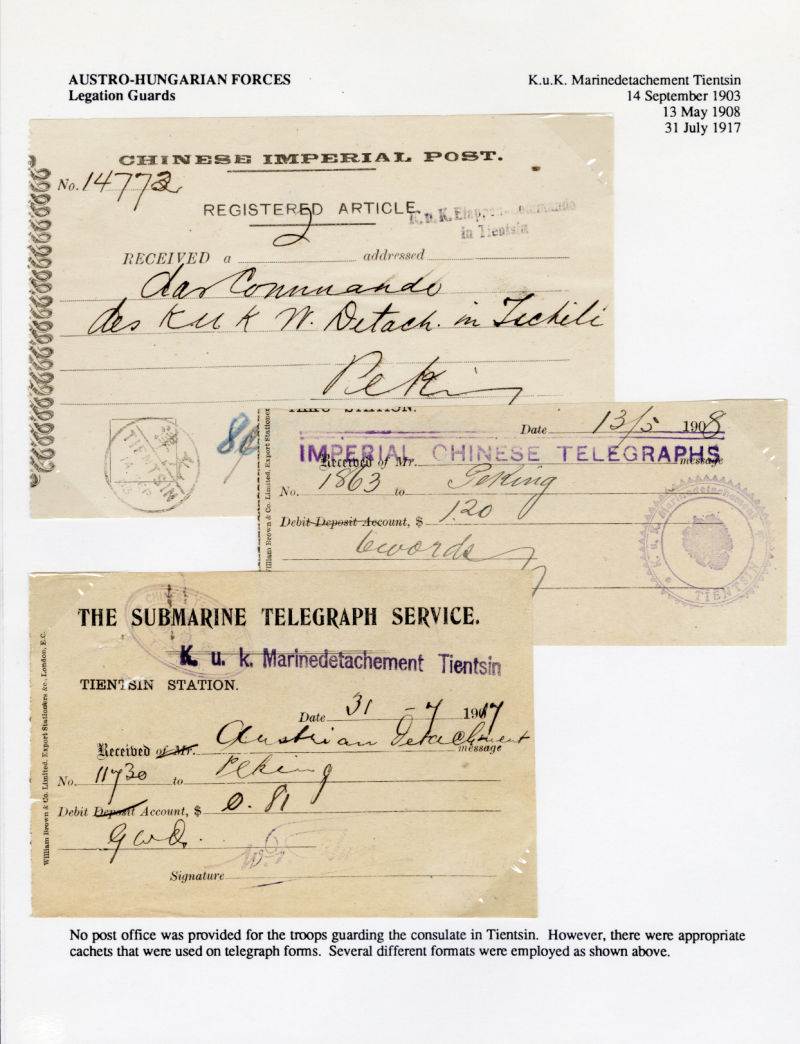 AUSTRO-HUNGARIAN FORCES
Legation Guards
K.u.K. Marinedetachement Tientsin
14 September 1903
13 May 1908
31 July 1917
CHINESE IMPERIAL POST.
No. 14773
REGISTERED ARTICLE.
K. u. K. Etappen-Commando
in Tientsin
2
RECEIVED a addressed
das Commando
des K u K W. Detach. in Tschili
Peking
TIENTSIN
80
TAKU STATION.
Date 13/5 1908
IMPERIAL CHINESE TELEGRAPHS
Received of Mr. message
No. 1863 to Peking
Debit Deposit Account, $ 1.20
6 words
K. u. K. Marinedetachement
TIENTSIN
William Brown & Co. Limited, Export Stationers
THE SUBMARINE TELEGRAPH SERVICE.
K. u. k. Marinedetachement Tientsin
TIENTSIN STATION.
Date 31 - 7 1917
Received of Mr. Austrian Detachment
message
No. 11730 to Peking
Debit Deposit Account, $ 0.81
9 wds.
Signature
William Brown & Co. Limited, Export Stationers &c., London, E.C.
No post office was provided for the troops guarding the consulate in Tientsin. However, there were appropriate
cachets that were used on telegraph forms. Several different formats were employed as shown above.